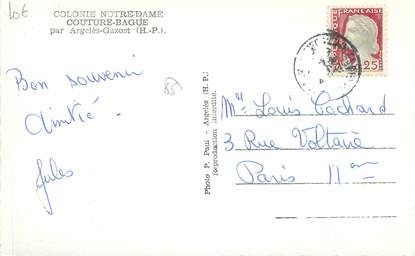 lot
COLONIE NOTRE-DAME
COUTURE-BAGUE
par Argelès-Gazost (H.-P.).
Bon souvenir
Amitié.
Jules
Photo P. Paul - Argelès (H.-P.)
Reproduction interdite.
25
Mr Louis Cachard
3 Rue Voltaire
Paris 11em